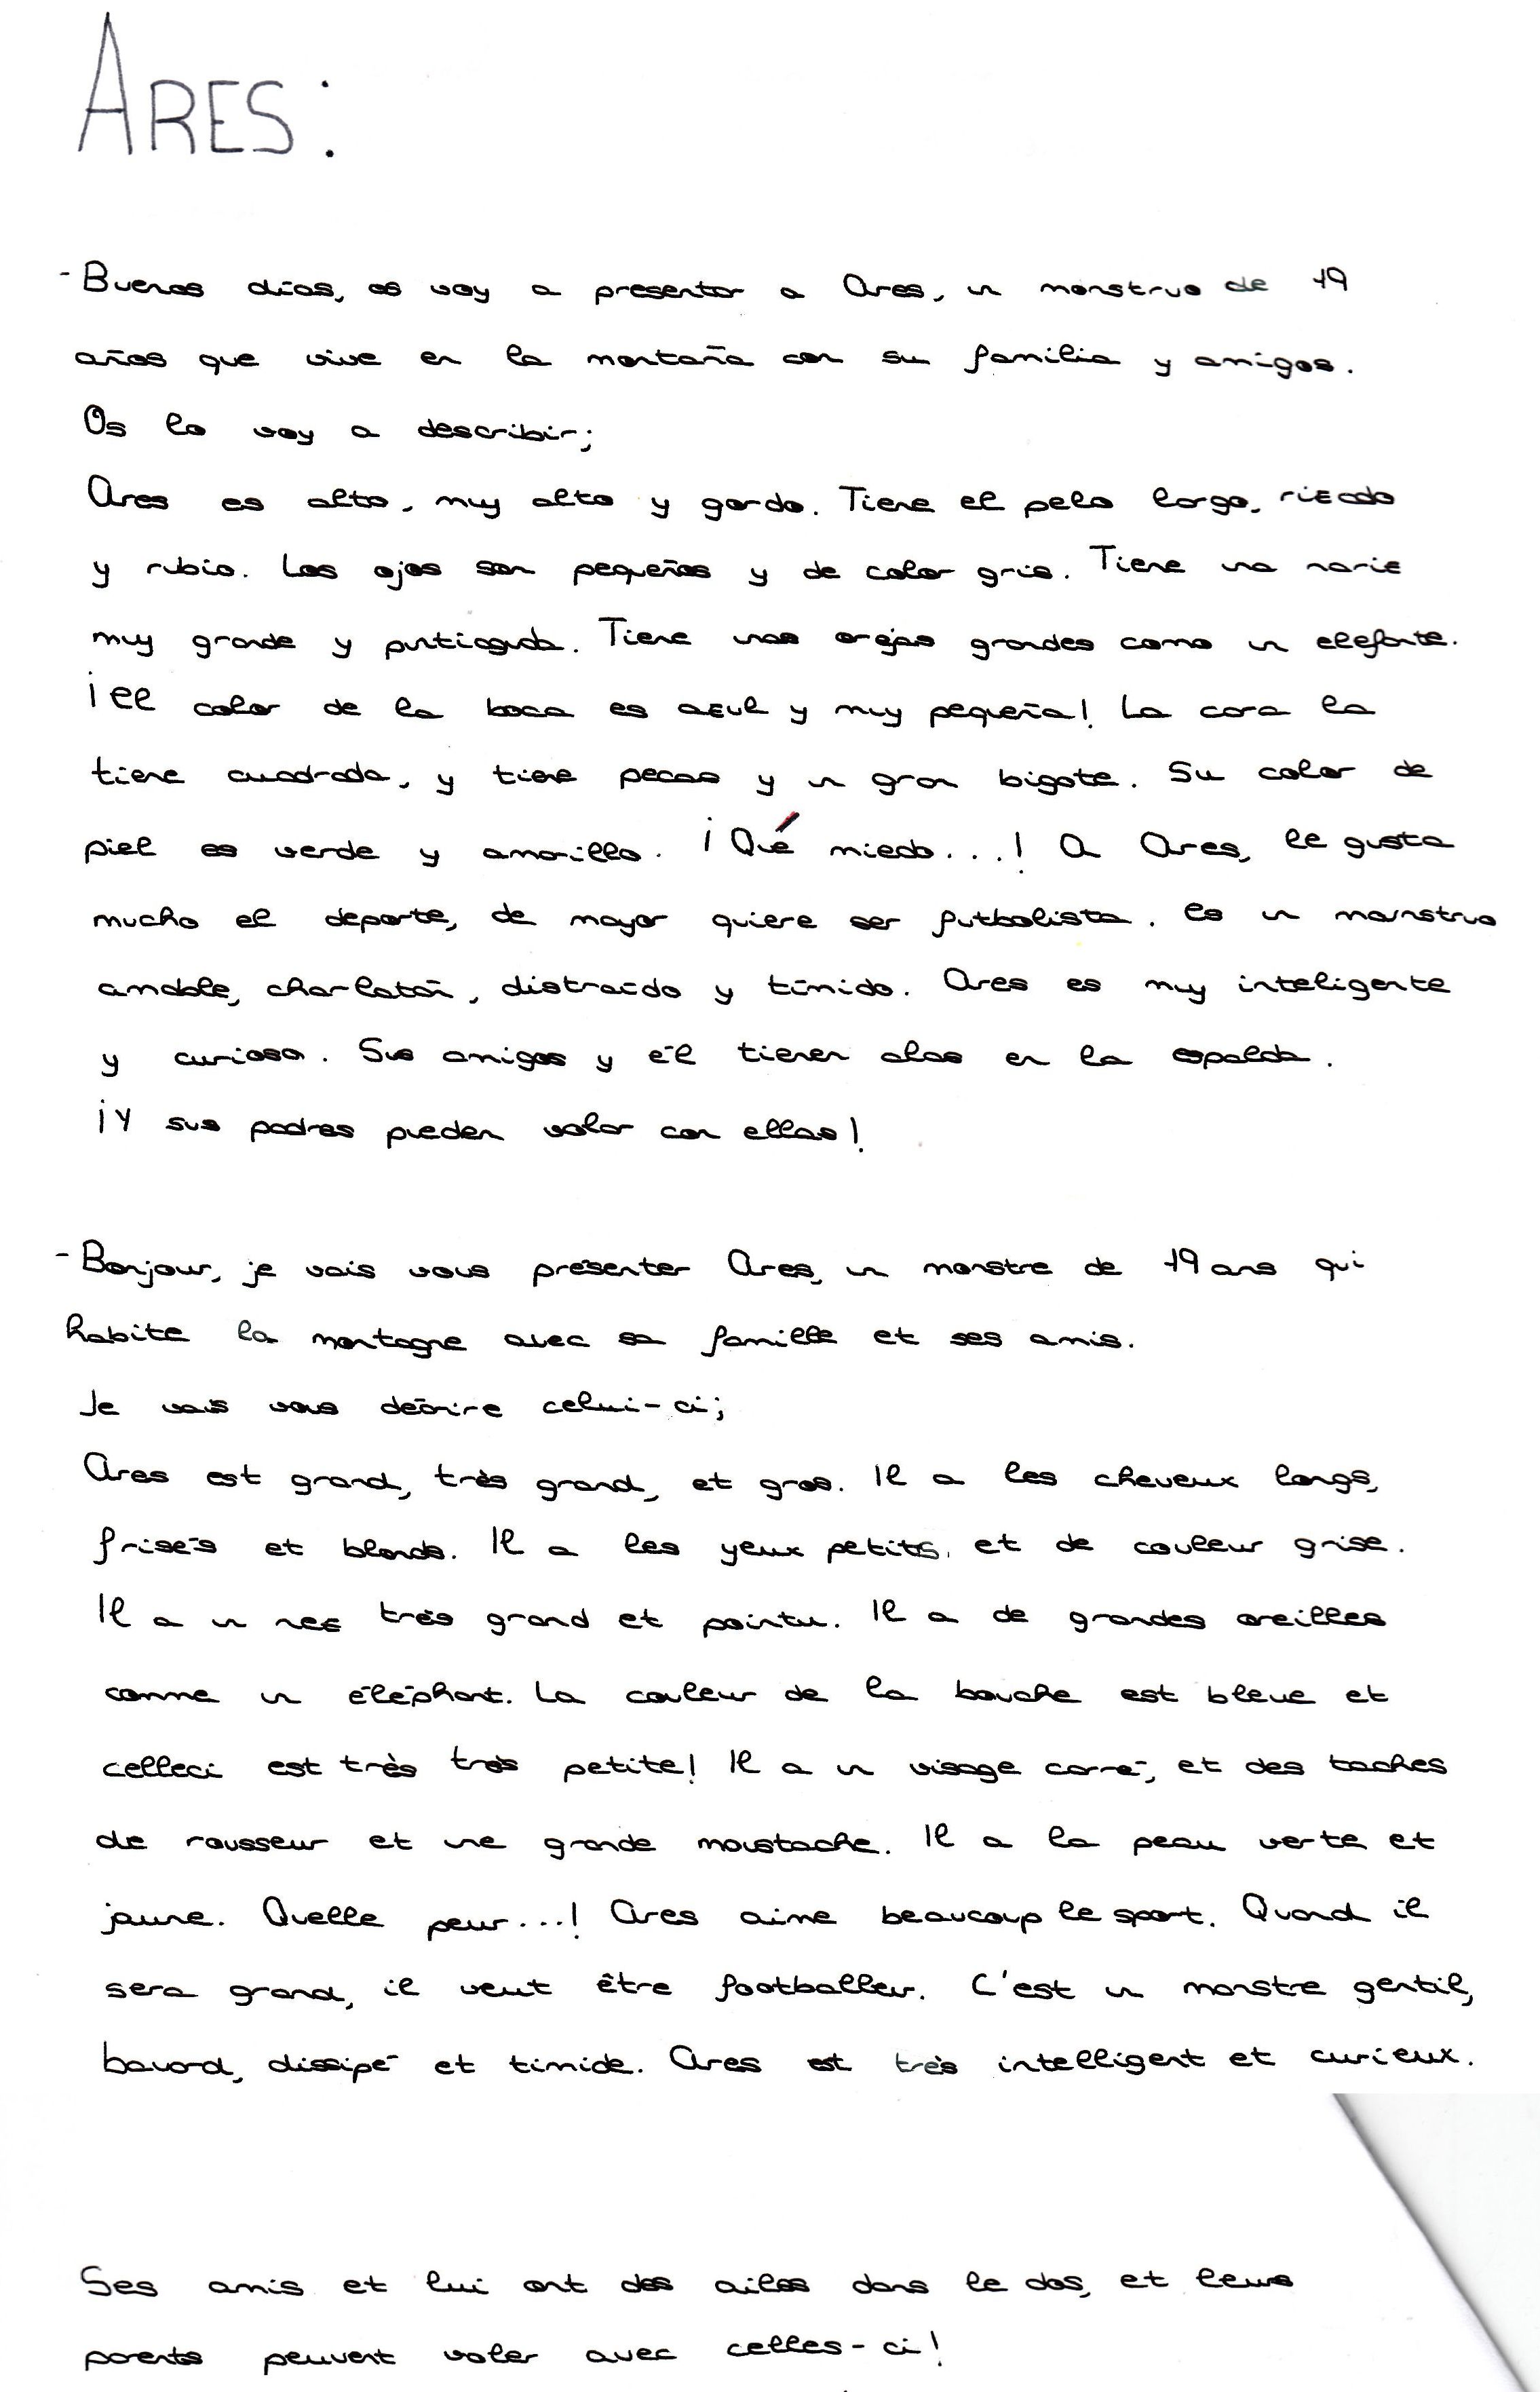 ARES:
- Buenos días, os voy a presentar a Ares, un monstruo de 19
años que vive en la montaña con su familia y amigos.
Os lo voy a describir;
Ares es alto, muy alto y gordo. Tiene el pelo largo, rizado
y rubio. Los ojos son pequeños y de color gris. Tiene una nariz
muy grande y puntiaguda. Tiene unas orejas grandes como un elefante.
¡El color de la boca es azul y muy pequeña! La cara la
tiene cuadrada, y tiene pecas y un gran bigote. Su color de
piel es verde y amarillo. ¡Qué miedo...! A Ares, le gusta
mucho el deporte, de mayor quiere ser futbolista. Es un monstruo
amable, charlatán, distraído y tímido. Ares es muy inteligente
y curioso. Sus amigos y él tienen alas en la espalda.
¡Y sus padres pueden volar con ellas!
- Bonjour, je vais vous présenter Ares, un monstre de 19 ans qui
habite la montagne avec sa famille et ses amis.
Je vais vous décrire celui-ci;
Ares est grand, très grand, et gros. Il a les cheveux longs,
frisés et blonds. Il a les yeux petits, et de couleur grise.
Il a un nez très grand et pointu. Il a de grandes oreilles
comme un éléphant. La couleur de la bouche est bleue et
celleci est très très petite! Il a un visage carré, et des taches
de rousseur et une grande moustache. Il a la peau verte et
jaune. Quelle peur...! Ares aime beaucoup le sport. Quand il
sera grand, il veut être footballeur. C'est un monstre gentil,
bavard, dissipé et timide. Ares est très intelligent et curieux.
Ses amis et lui ont des ailes dans le dos, et leurs
parents peuvent voler avec celles-ci!